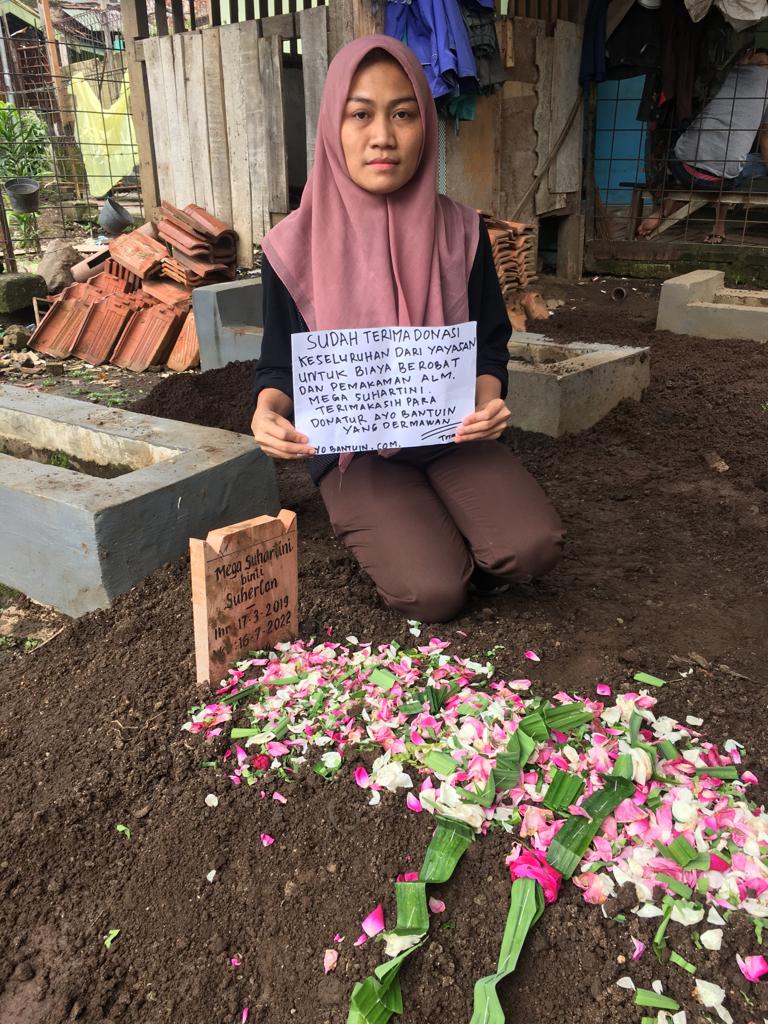 SUDAH TERIMA DONASI
KESELURUHAN DARI YAYASAN
UNTUK BIAYA BEROBAT
DAN PEMAKAMAN ALM.
MEGA SUHARTINI.
TERIMAKASIH PARA
DONATUR AYO BANTUIN
YANG DERMAWAN
YO BANTUIN.COM.
Mega Suhartini
binti
Suherlan
lhr 17-3-2019
16-7-2022